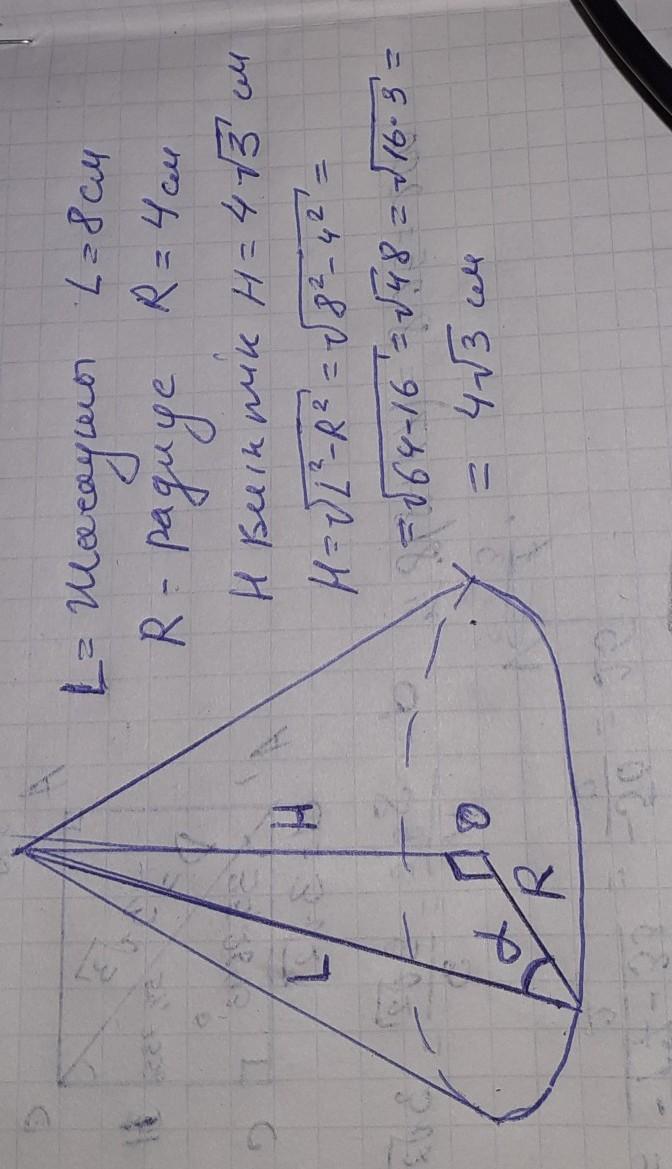 L = Жасаушы L = 8 см
R - радиус R = 4 см
H биіктік H = 4√3 см
H = √L² - R² = √8² - 4² =
= √64 - 16 = √48 = √16·3 =
= 4√3 см
H
L
O
α
R